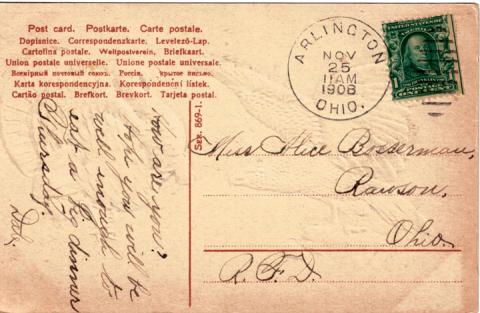 Post card. Postkarte. Carte postale.
Dopisnice. Correspondenzkarte. Levelező-Lap.
Cartolina postale. Weltpostverein. Briefkaart.
Union postale universelle. Unione postale universale.
Всемірный почтовый союзъ. Россія. Крытое письмо.
Karta korespondencyjna. Korespondenční lístek.
Cartão postal. Brefkort. Brevkort. Tarjeta postal.
ARLINGTON
NOV
25
11 AM
1908
OHIO.
Ser. 869-1.
How are you?
hope you will be
well enough to
eat a big dinner
Thursday.
Miss Alice Bosserman,
Rawson,
Ohio.
R.F.D.